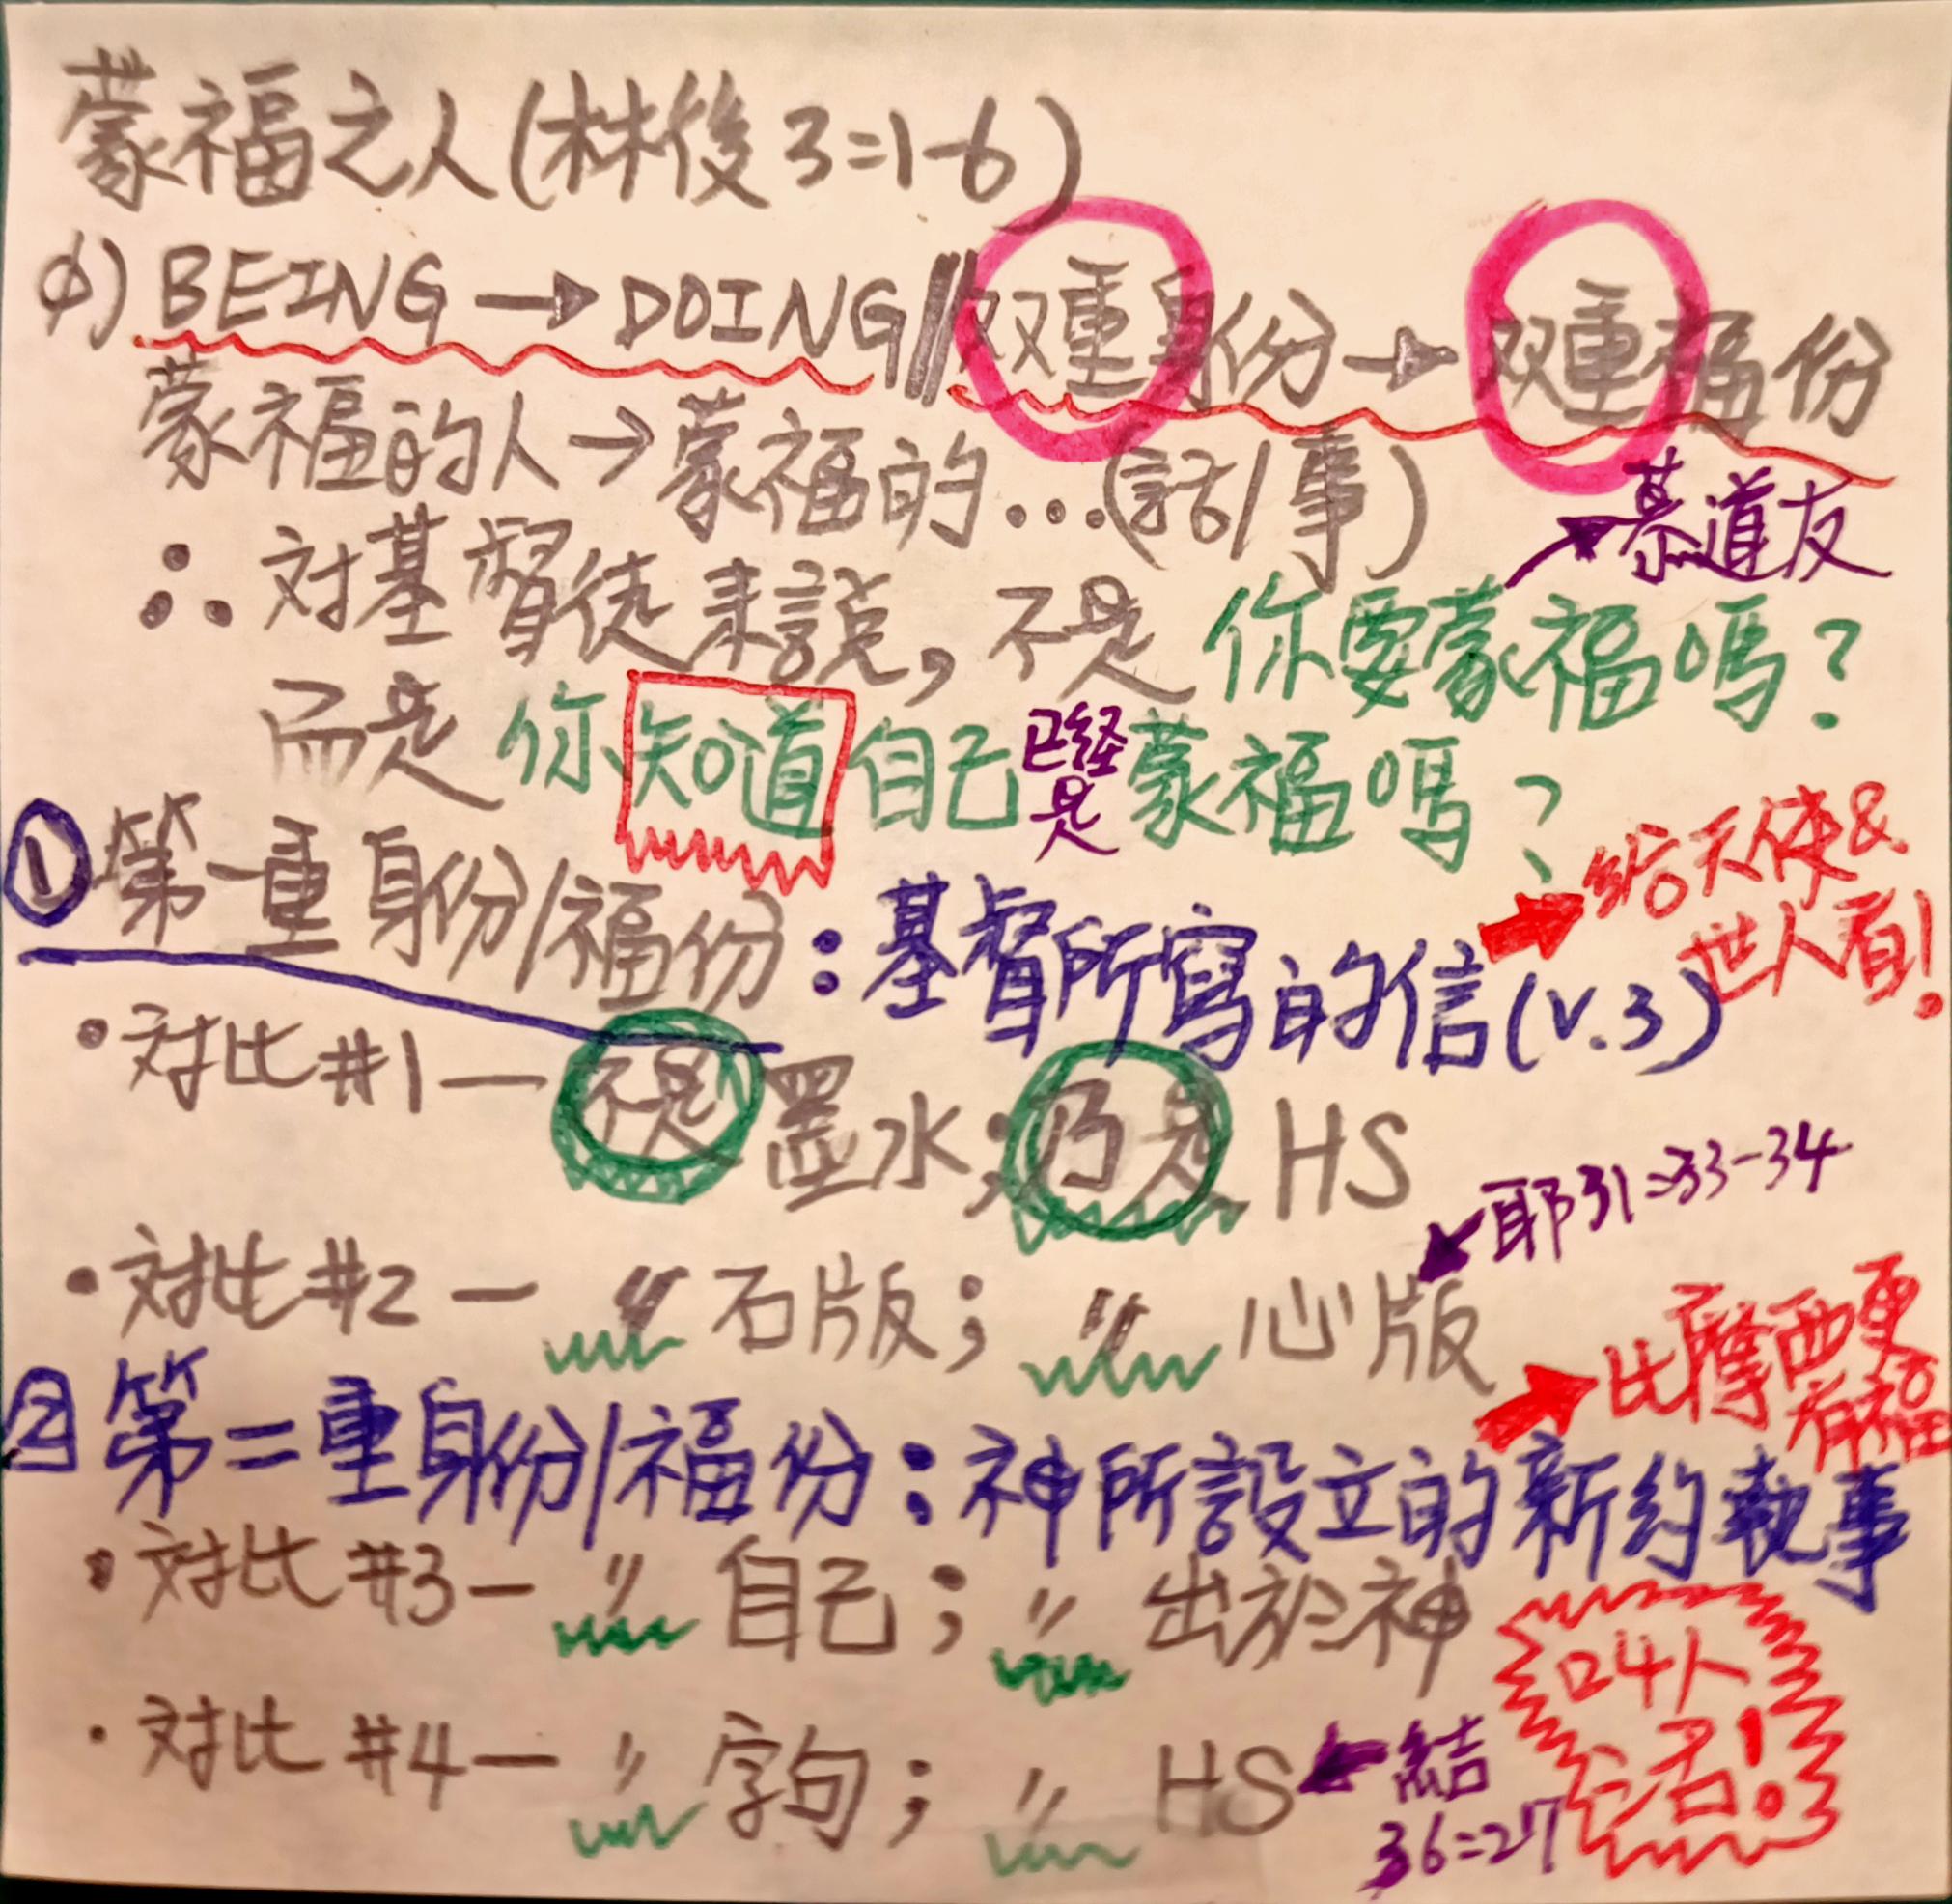 蒙福之人(林後3:1-6)
∅) BEING → DOING // 双重身份 → 双重福份
蒙福的人→蒙福的...(話/事)
→慕道友
∴ 对基督徒来說,不是你要蒙福嗎?
而是你知道自己已経是蒙福嗎?
① 第一重身份/福份:基督所寫的信(v.3)
→給天使&
世人看!
• 对比#1 — 不是墨水;乃是 HS
• 对比#2 — 〃 石版; 〃 心版
←耶31:33-34
2 第二重身份/福份:神所設立的新約執事
→比摩西更
有福
• 对比#3 — 〃 自己; 〃 出於神
• 对比#4 — 〃 字句; 〃 HS
←結
36:27
叫人
活!